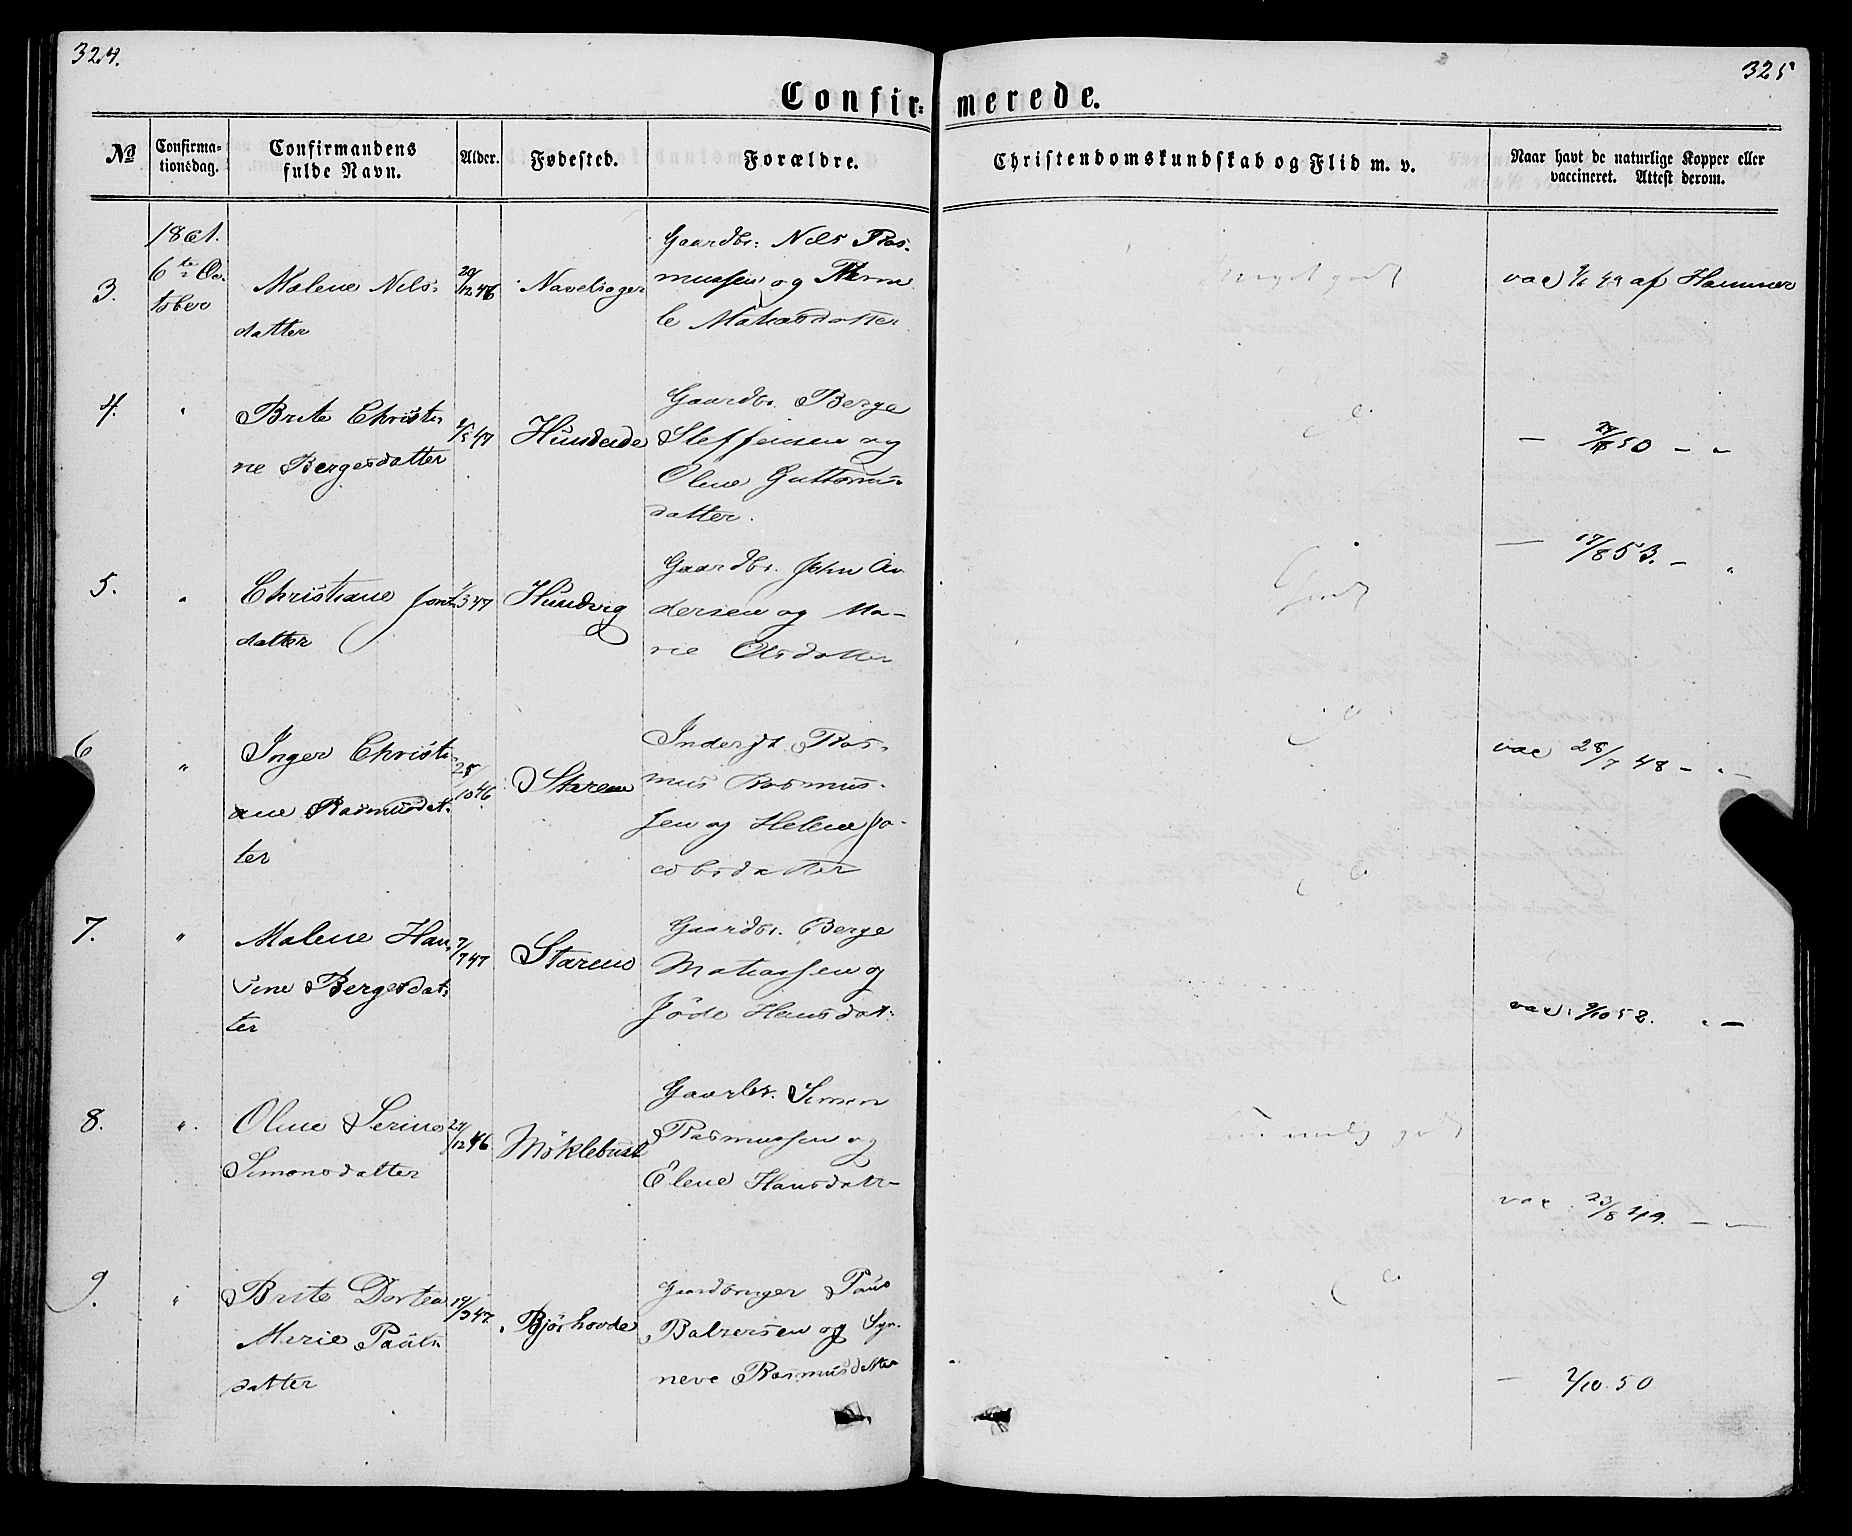 324.
325
Confir-merede.
No
Confirma-
tionsdag.
Confirmandens
fulde Navn.
Alder.
Fødested.
Forældre.
Christendomskundskab og Flid m. v.
Naar havt de naturlige Kopper eller
vaccineret. Attest derom.
3.
1861.
6te Oc-
tober
Malene Nils-
datter
20/12 46
Navelsager
Gaardbr: Nils Ras-
mussen og
le Matiasdatter
meget godt
vac 49 af Hammer
4.
"
Brite Christi-
ne Bergesdatter
47
Hundeide
Gaardbr. Berge
Steffensen og
Olene Guttorms-
datter.
50 - "
5.
"
Christiane Jons-
datter
3 47
Hundvig
Gaardbr. John An-
dersen og Ma-
rie Olsdatter
Godt
- 17/8 53. - "
6
"
Inger Christi-
ane Rasmusdat-
ter
25/10 46
Starene
Inderst. Ras-
mus Rasmus-
sen og Helene Ja-
cobsdatter
vac 28/7 48 - " -
7.
"
Malene Han-
sine Bergesdat-
ter
7/7 47
Starene
Gaardbr. Berge
Matiassen og
Jøde Hansdat-
vac: 9/10 52. " -
8.
"
Oline Serine
Simonsdatter
24/12 46
Möklebust
Gaardbr. Simon
Rasmussen og
Elene Hansdatr-
godt
vac 23/8 49. - -
9.
"
Brite Dortea
Merie Pauls-
datter
19/3 47
Bjørhovde
Gaardbruger Paul
Balzersen og Syn-
neve Rasmusdatter
- 2/10 50